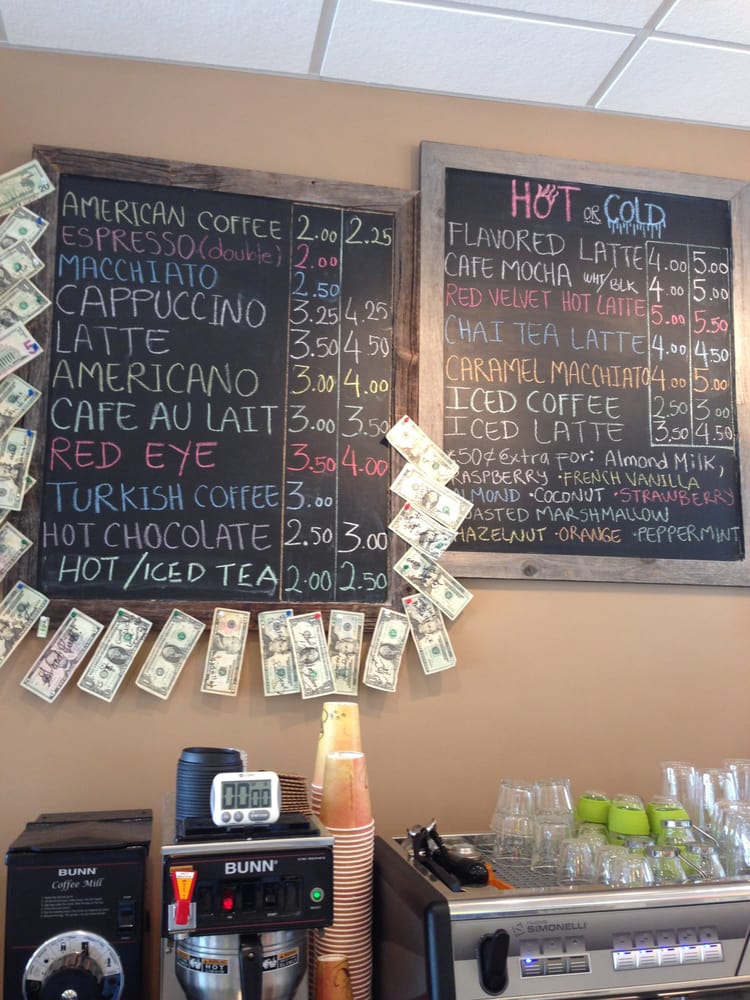 AMERICAN COFFEE 2.00 2.25
ESPRESSO (double) 2.00
MACCHIATO 2.50
CAPPUCCINO 3.25 4.25
LATTE 3.50 4.50
AMERICANO 3.00 4.00
CAFE AU LAIT 3.00 3.50
RED EYE 3.50 4.00
TURKISH COFFEE 3.00
HOT CHOCOLATE 2.50 3.00
HOT/ICED TEA 2.00 2.50
HOT OR COLD
FLAVORED LATTE 4.00 5.00
CAFE MOCHA WHT/BLK 4.00 5.00
RED VELVET HOT LATTE 5.00 5.50
CHAI TEA LATTE 4.00 4.50
CARAMEL MACCHIATO 4.00 5.00
ICED COFFEE 2.50 3.00
ICED LATTE 3.50 4.50
*50¢ extra for: Almond Milk,
RASPBERRY • FRENCH VANILLA
ALMOND • COCONUT • STRAWBERRY
TOASTED MARSHMALLOW
HAZELNUT • ORANGE • PEPPERMINT
00:00
BUNN
Coffee Mill
BUNN
HOT
SIMONELLI